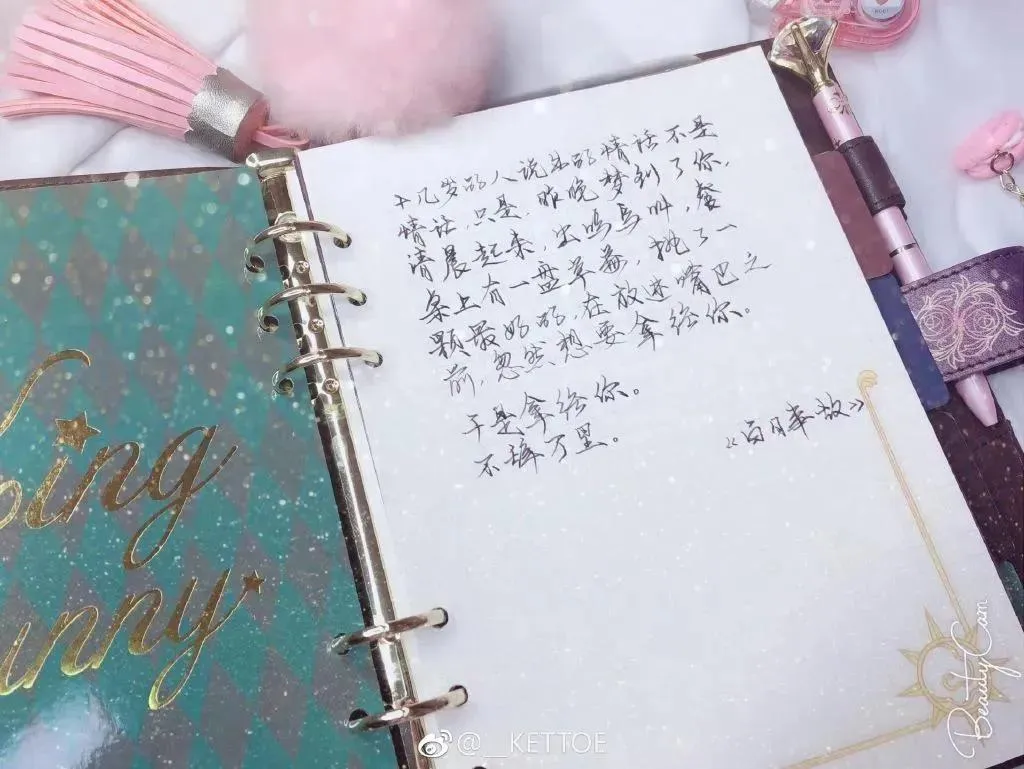 十几岁的人说出的情话不是
情话,只是,昨晚梦到了你,
清晨起来,出鸣鸟叫,餐
条上有一盘草莓,挑了一
颗最好的,在放进嘴巴之
前,忽然想要拿给你。
于是拿给你。
不辞万里。
《百日事故》
ing
unny
BeautyCam
@__KETTOE